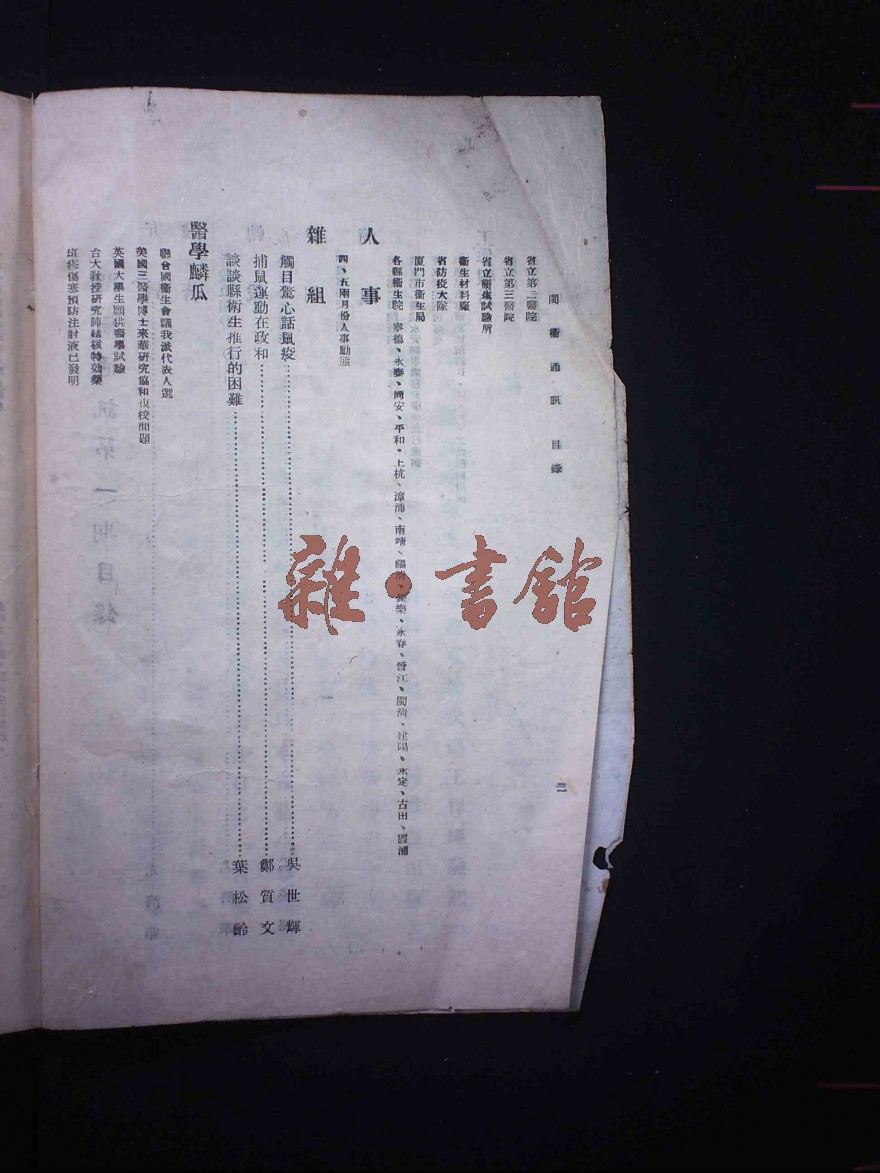 閩衛通訊目錄
二
省立第二醫院
省立第三醫院
省立衛生試驗所
衛生材料廠
省防疫大隊
廈門市衛生局
各縣衛生院 寧德、永泰、同安、平和、上杭、漳浦、南靖、福清、長樂、永春、晉江、閩清、建陽、永定、古田、霞浦
人事
四、五兩月份人事動態
雜組
觸目驚心話鼠疫………吳世輝
捕鼠運動在政和………鄭質文
談談縣衛生推行的困難………葉松齡
醫學鱗瓜
聯合國衛生會議我派代表人選
美國三醫學博士來華研究協和復校問題
英國大學生願供醫學試驗
台大教授研究肺結核特効藥
斑疹傷寒預防注射液已發明
雜·書館